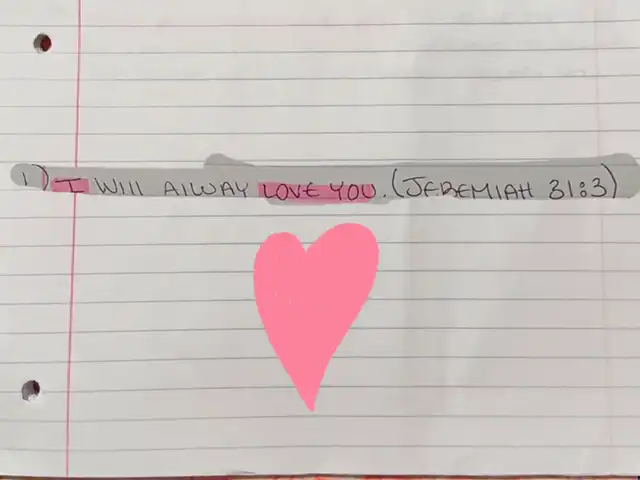 1) I WILL ALWAY LOVE YOU. (JEREMIAH 31:3)